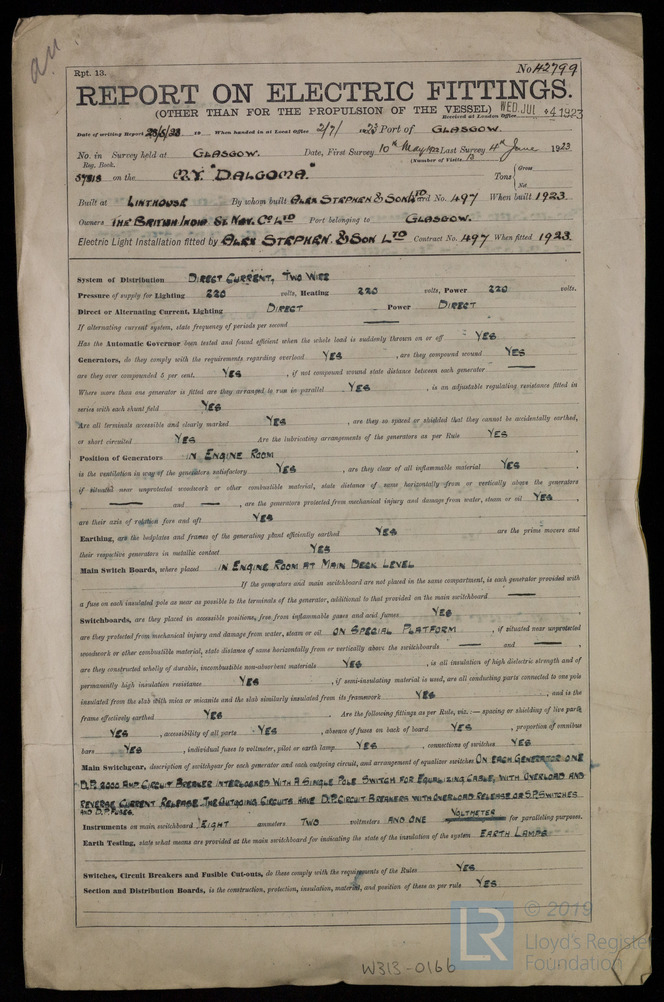 Rpt. 13.
No 42799
REPORT ON ELECTRIC FITTINGS.
(OTHER THAN FOR THE PROPULSION OF THE VESSEL) WED. JUL 4 1923
Received at London Office
Date of writing Report 28/5/23 19 When handed in at Local Office 2/7/ 1923 Port of GLASGOW.
No. in Survey held at GLASGOW. Date, First Survey 10th May 1922 Last Survey 4th June 1923
Reg. Book. (Number of Visits 12
37818 on the M.V. "DALGOMA" Tons { Gross
Net
Built at LINTHOUSE By whom built ALEX STEPHEN & SON LTD Yard No. 497 When built 1923
Owners THE BRITISH INDIA St. NAV. Co. LTD Port belonging to GLASGOW.
Electric Light Installation fitted by ALEX STEPHEN & SON LTD Contract No. 497 When fitted 1923
System of Distribution DIRECT CURRENT, TWO WIRE
Pressure of supply for Lighting 220 volts, Heating 220 volts, Power 220 volts.
Direct or Alternating Current, Lighting DIRECT Power DIRECT
If alternating current system, state frequency of periods per second —
Has the Automatic Governor been tested and found efficient when the whole load is suddenly thrown on or off YES
Generators, do they comply with the requirements regarding overload YES , are they compound wound YES
are they over compounded 5 per cent. YES , if not compound wound state distance between each generator —
Where more than one generator is fitted are they arranged to run in parallel YES , is an adjustable regulating resistance fitted in
series with each shunt field YES
Are all terminals accessible and clearly marked YES , are they so spaced or shielded that they cannot be accidentally earthed,
or short circuited YES Are the lubricating arrangements of the generators as per Rule YES
Position of Generators IN ENGINE ROOM
is the ventilation in way of the generators satisfactory YES , are they clear of all inflammable material YES ,
if situated near unprotected woodwork or other combustible material, state distance of same horizontally from or vertically above the generators
— and — , are the generators protected from mechanical injury and damage from water, steam or oil YES ,
are their axis of rotation fore and aft YES
Earthing, are the bedplates and frames of the generating plant efficiently earthed YES are the prime movers and
their respective generators in metallic contact YES
Main Switch Boards, where placed IN ENGINE ROOM AT MAIN DECK LEVEL
If the generators and main switchboard are not placed in the same compartment, is each generator provided with
a fuse on each insulated pole as near as possible to the terminals of the generator, additional to that provided on the main switchboard —
Switchboards, are they placed in accessible positions, free from inflammable gases and acid fumes YES ,
are they protected from mechanical injury and damage from water, steam or oil ON SPECIAL PLATFORM , if situated near unprotected
woodwork or other combustible material, state distance of same horizontally from or vertically above the switchboards — and — ,
are they constructed wholly of durable, incombustible non-absorbent materials YES , is all insulation of high dielectric strength and of
permanently high insulation resistance YES , if semi-insulating material is used, are all conducting parts connected to one pole
insulated from the slab with mica or micanite and the slab similarly insulated from its framework YES , and is the
frame effectively earthed YES . Are the following fittings as per Rule, viz.:— spacing or shielding of live parts
YES , accessibility of all parts YES , absence of fuses on back of board YES , proportion of omnibus
bars YES , individual fuses to voltmeter, pilot or earth lamp YES , connections of switches YES
Main Switchgear, description of switchgear for each generator and each outgoing circuit, and arrangement of equalizer switches ON EACH GENERATOR ONE
D.P. 2000 AMP CIRCUIT BREAKER INTERLOCKED WITH A SINGLE POLE SWITCH FOR EQUALIZING CABLE, WITH OVERLOAD AND
REVERSE CURRENT RELEASE. THE OUTGOING CIRCUITS HAVE D.P. CIRCUIT BREAKERS WITH OVERLOAD RELEASE OR S.P. SWITCHES
AND D.P. FUSES.
Instruments on main switchboard EIGHT ammeters TWO voltmeters AND ONE VOLTMETER for paralleling purposes.
Earth Testing, state what means are provided at the main switchboard for indicating the state of the insulation of the system EARTH LAMPS
Switches, Circuit Breakers and Fusible Cut-outs, do these comply with the requirements of the Rules YES
Section and Distribution Boards, is the construction, protection, insulation, material, and position of these as per rule YES
© 2019
LR Lloyd's Register
Foundation
W313-0166